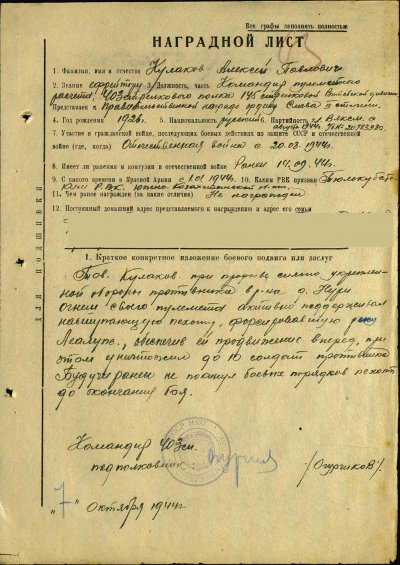 Все графы заполнять полностью
НАГРАДНОЙ ЛИСТ
1. Фамилия, имя и отчество Кулаков Алексей Павлович
2. Звание сержант 3. Должность, часть Командир пулеметного
расчета, 403 стрелкового полка 145 стрелковой Витебской дивизии
Представлен к Правительственной награде ордену Слава III степени.
4. Год рождения 1926г. 5. Национальность русский 6. Партийность чл. ВЛКСМ с
августа 1944г.
7. Участие в гражданской войне, последующих боевых действиях по защите СССР и отечественной
войне (где, когда) Отечественная война с 20.03.1944г.
8. Имеет ли ранения и контузии в отечественной войне Ранен 14.09.44г.
9. С какого времени в Красной Армии с 1944г. 10. Каким РВК призван Тюлькубас-
ким РВК. Южно Казахстанской обл.
11. Чем ранее награжден (за какие отличия) Не награжден
12. Постоянный домашний адрес представляемого к награждению и адрес его семьи
с
ДЛЯ ПОДШИВКИ
I. Краткое конкретное изложение боевого подвига или заслуг
Тов. Кулаков при прорыве сильно укреплен-
ной обороны противника в р-не о. Нури
огнем своего пулемета активно поддерживал
наступающую пехоту, форсировавшую реку
Меалупе, обеспечив ей продвижение вперед, при
этом уничтожил до 10 солдат противника
Будучи ранен не покинул боевых порядков пехоты
до окончания боя.
Командир 403 сп.
подполковник
/Огурчиков/.
"7" октября 1944г.